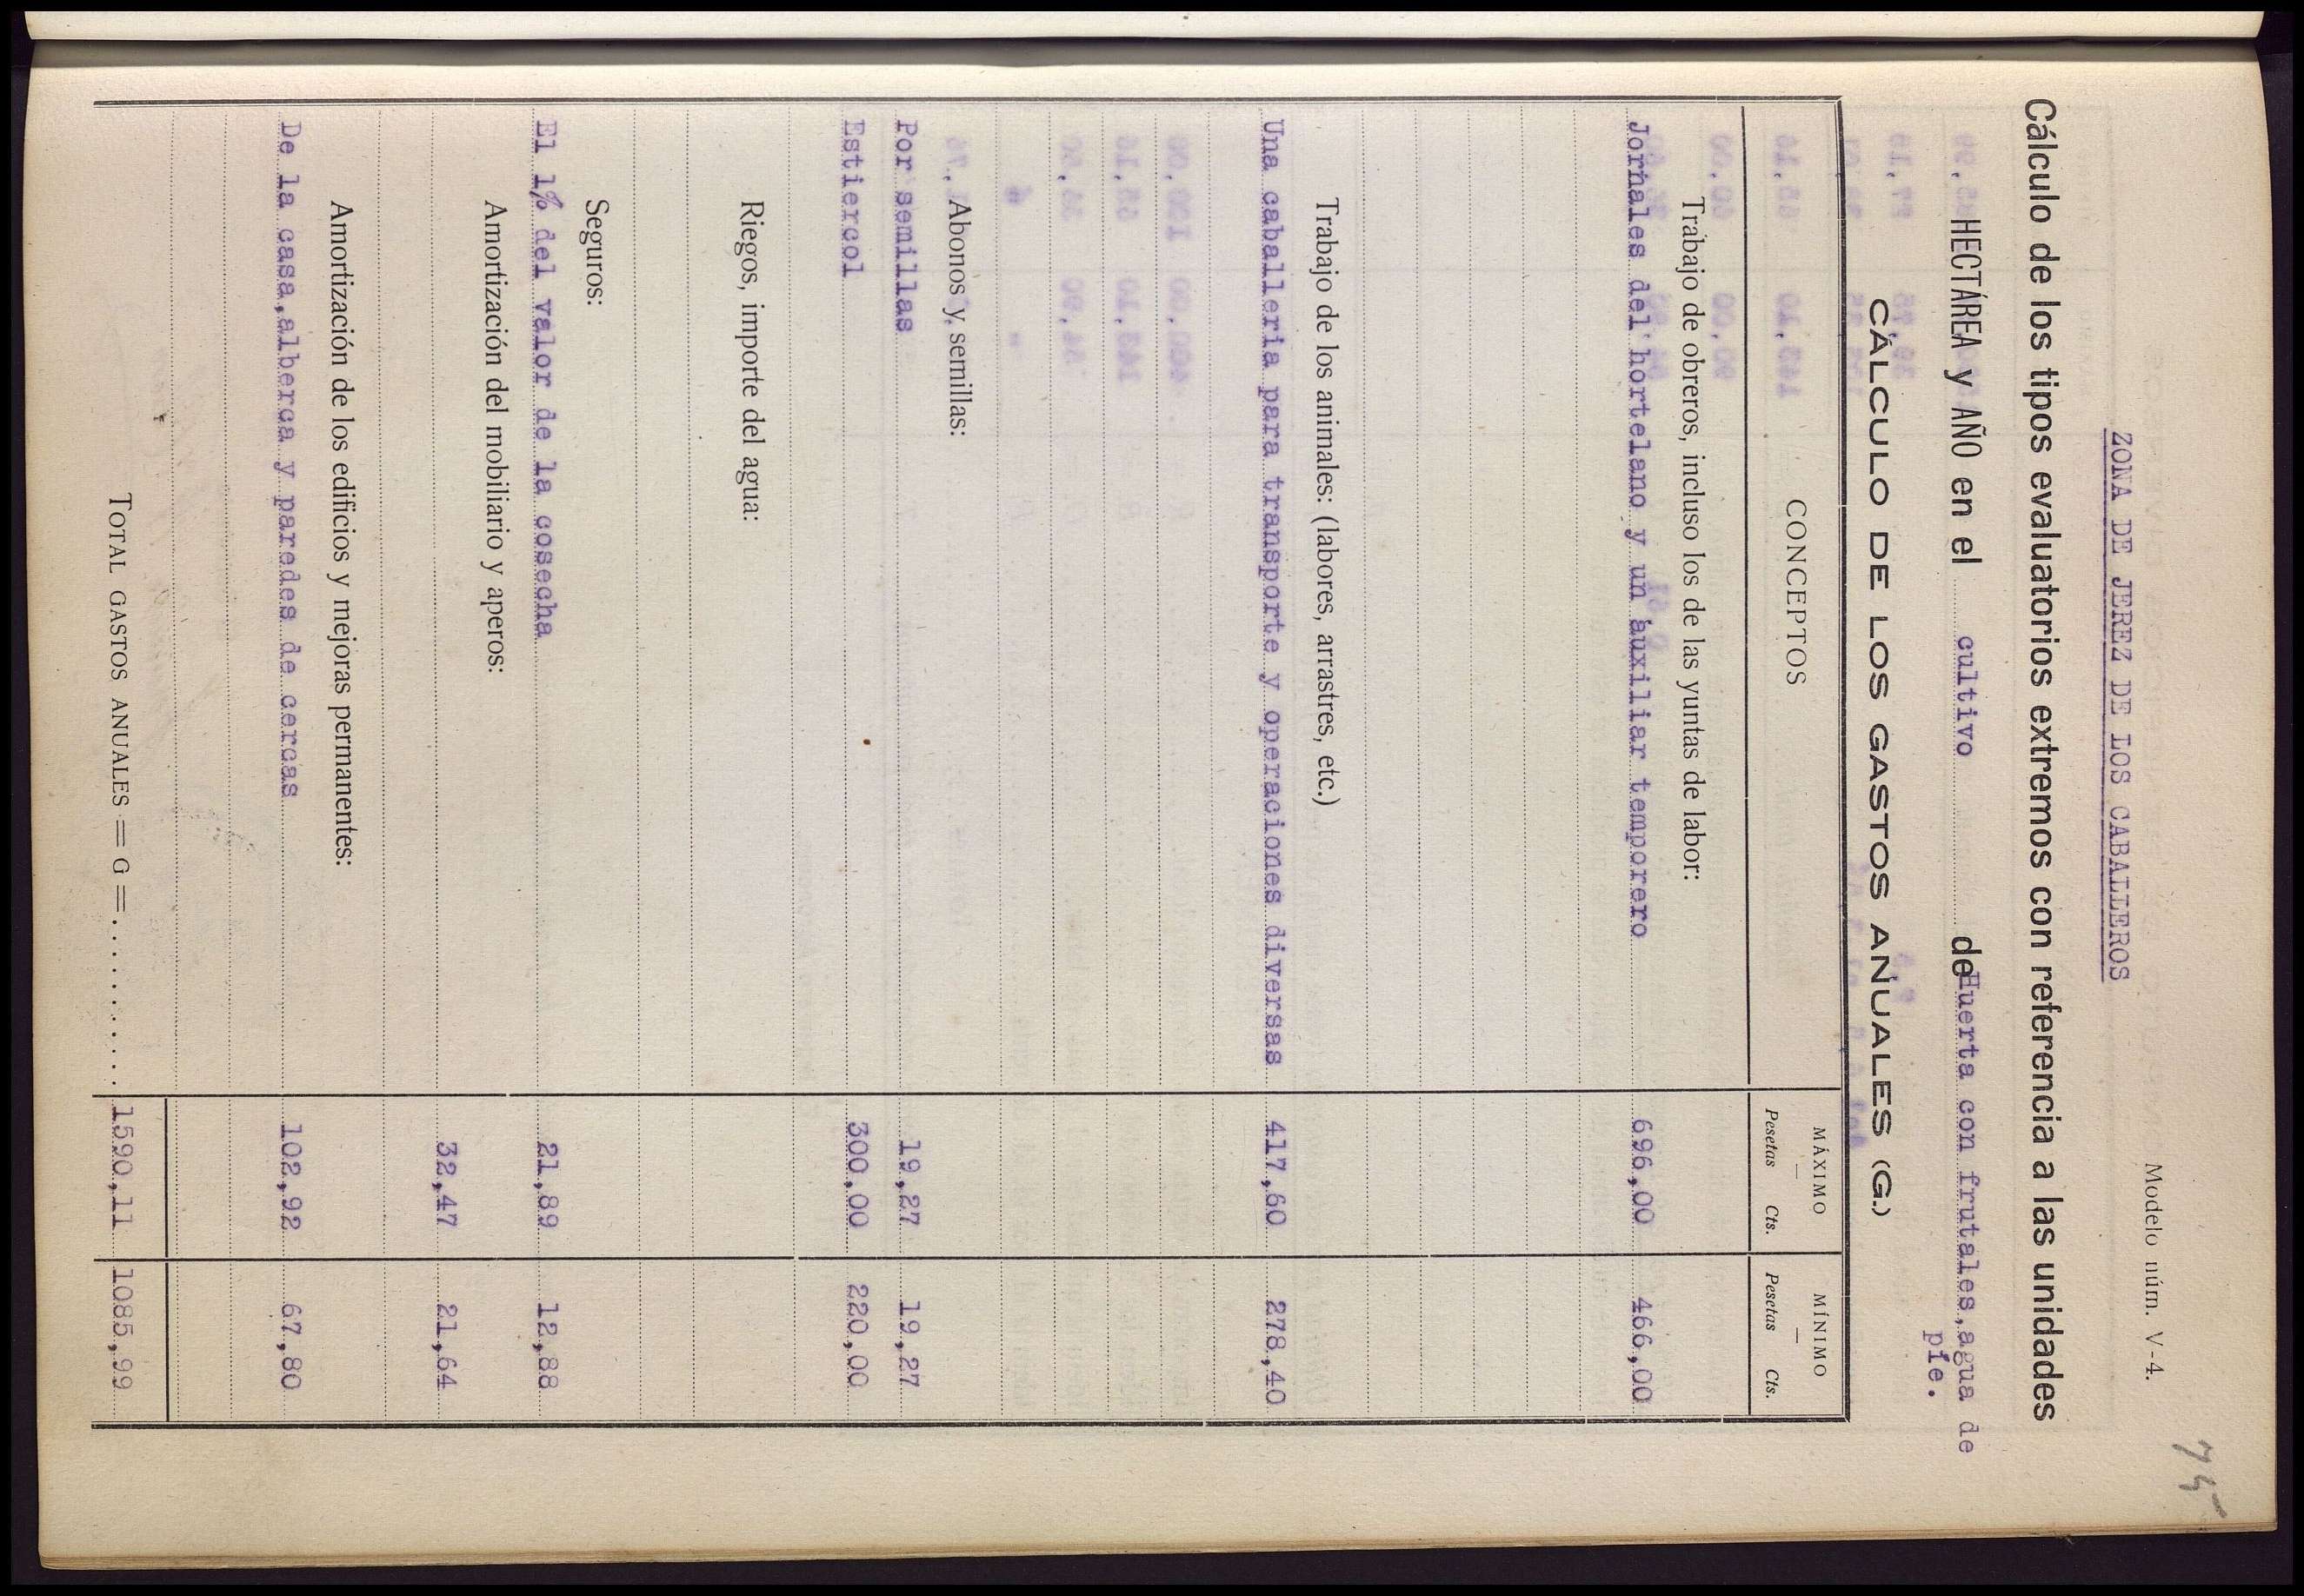 Modelo núm. V-4.
75
ZONA DE JEREZ DE LOS CABALLEROS
Cálculo de los tipos evaluatorios extremos con referencia a las unidades
HECTÁREA y AÑO en el cultivo de Huerta con frutales, agua de
píe.
CÁLCULO DE LOS GASTOS ANUALES (G.)
CONCEPTOS MÁXIMO MÍNIMO
Pesetas Cts. Pesetas Cts.
Trabajo de obreros, incluso los de las yuntas de labor:
Jornales del hortelano y un auxiliar temporero 696,00 466,00
Trabajo de los animales: (labores, arrastres, etc.)
Una caballeria para transporte y operaciones diversas 417,60 278,40
Abonos y semillas:
Por semillas 19,27 19,27
Estiercol 300,00 220,00
Riegos, importe del agua:
Seguros:
El 1% del valor de la cosecha 21,89 12,88
Amortización del mobiliario y aperos:
32,47 21,64
Amortización de los edificios y mejoras permanentes:
De la casa, alberca y paredes de cercas 102,92 67,80
TOTAL GASTOS ANUALES = G = . . . . . . . . . . 1590,11 1085,99